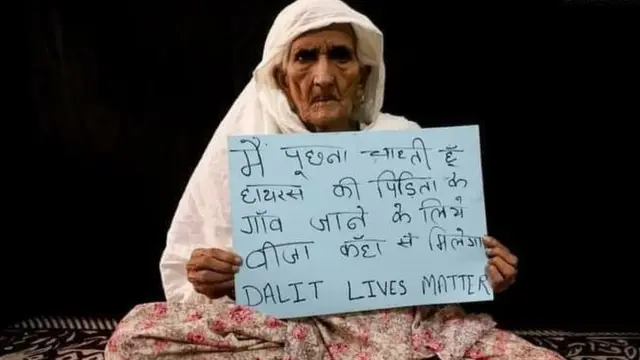 मैं पूछना चाहती हूँ
हाथरस की पिड़िता के
गाँव जाने के लिये
वीजा कँहा से मिलेगा
DALIT LIVES MATTER